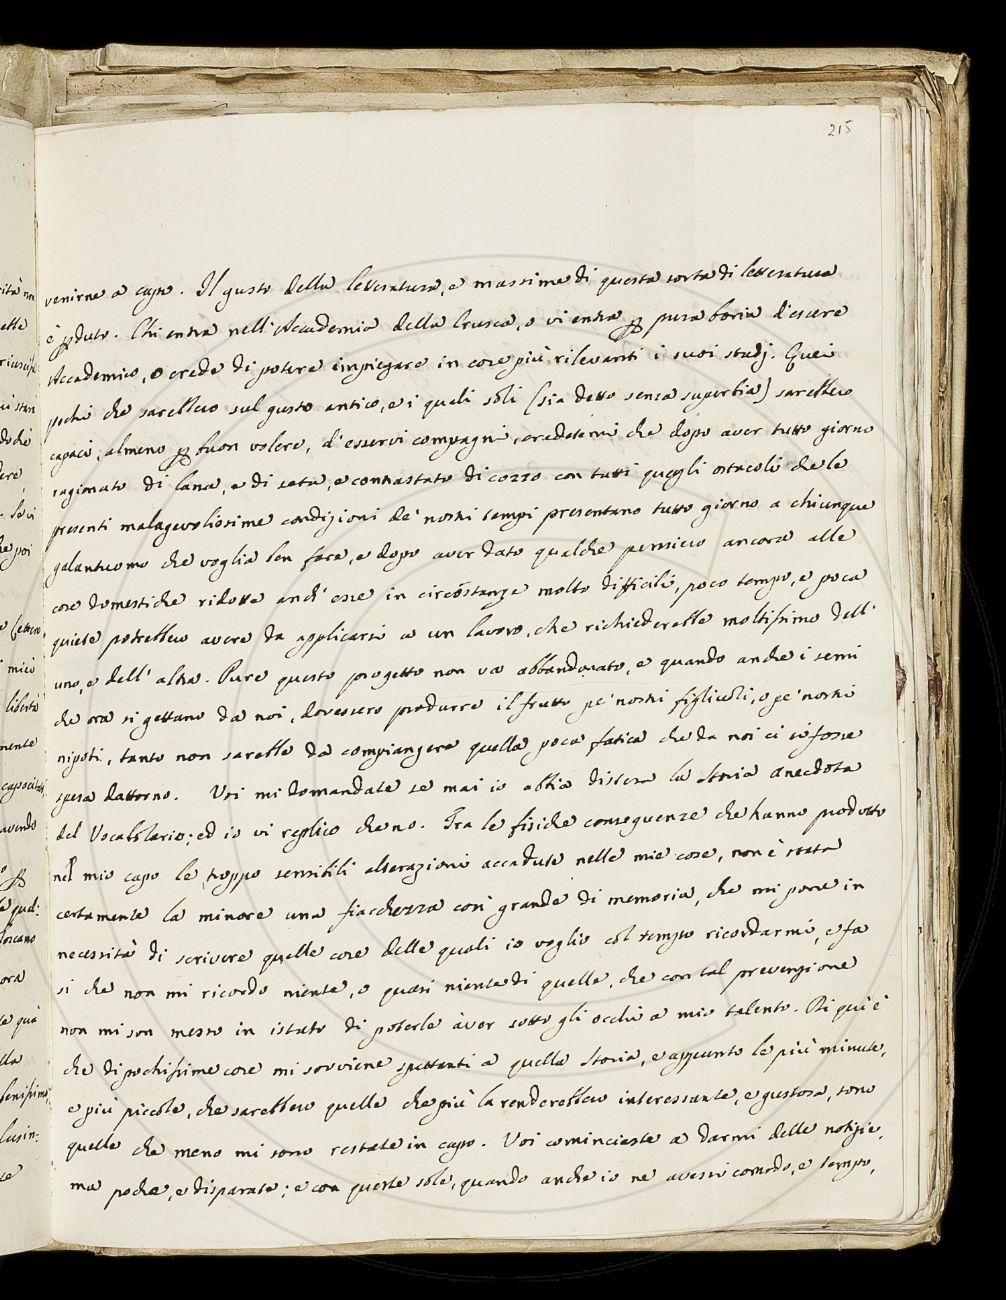 215
venirne a capo. Il gusto della letteratura, e massime di questa sorta di letteratura
è pduto. Chi entra nell'Accademia della Crusca, o vi entra p pura boria d'essere
Accademico, o crede di potere impiegare in cose più rilevanti i suoi studj. Quei
pochi che sarebbero sul gusto antico, e i quali soli (sia detto senza superbia) sarebbero
capaci, almeno p buon volere, d'esservi compagni, credetemi che dopo aver tutto giorno
ragionato di lana, e di seta, e contrastato di cozzo con tutti quegli ostacoli che le
presenti malagevolissime condizioni de' nostri tempi presentano tutto giorno a chiunque
galantuomo che voglia ben fare, e dopo aver dato qualche pensiero ancora alle
cose domestiche ridotte anch'esse in circostanze molto difficili, poco tempo, e poca
quiete potrebbero avere da applicarsi a un lavoro, che richiederebbe moltissimo dell'
uno, e dell'altra. Pure questo progetto non va abbandonato, e quando anche i semi
che ora si gettano da noi, dovessero produrre il frutto pe' nostri figliuoli, o pe' nostri
nipoti, tanto non sarebbe da compiangere quella poca fatica che da noi ci si fosse
spesa dattorno. Voi mi domandate se mai io abbia distesa la storia anecdota
del Vocabolario; ed io vi replico che no. Fra le fisiche conseguenze che hanno prodotto
nel mio capo le troppo sensibili alterazioni accadute nelle mie cose, non è stata
certamente la minore una fiacchezza così grande di memoria, che mi pone in
necessità di scrivere quelle cose delle quali io voglio col tempo ricordarmi, e fa
sì che non mi ricordo niente, o quasi niente di quelle, che con tal prevenzione
non mi son messo in istato di poterle aver sotto gli occhi a mio talento. Di qui è
che di pochissime cose mi sovviene spettanti a quella Storia, e appunto le più minute,
e più piccole, che sarebbero quelle che più la renderebbero interessante, e gustosa, sono
quelle che meno mi sono restate in capo. Voi cominciaste a darmi delle notizie,
ma poche, e disparate; e con queste sole, quando anche io ne avessi comodo, e tempo,